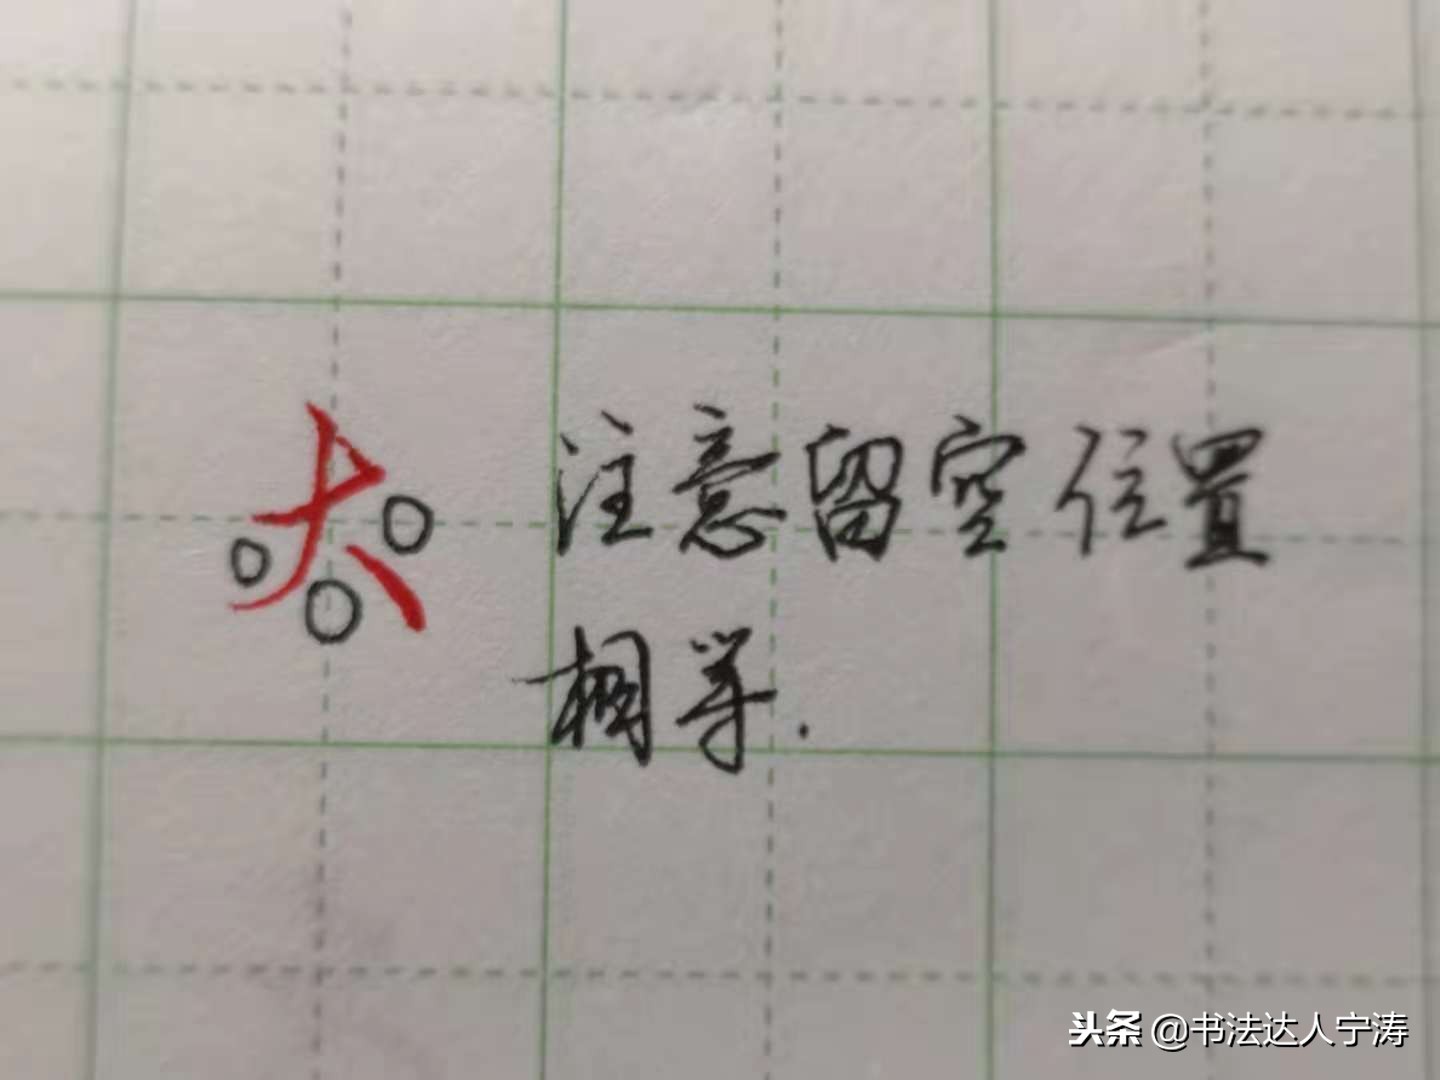 大
注意留空位置
相等.
头条 @书法达人宁涛